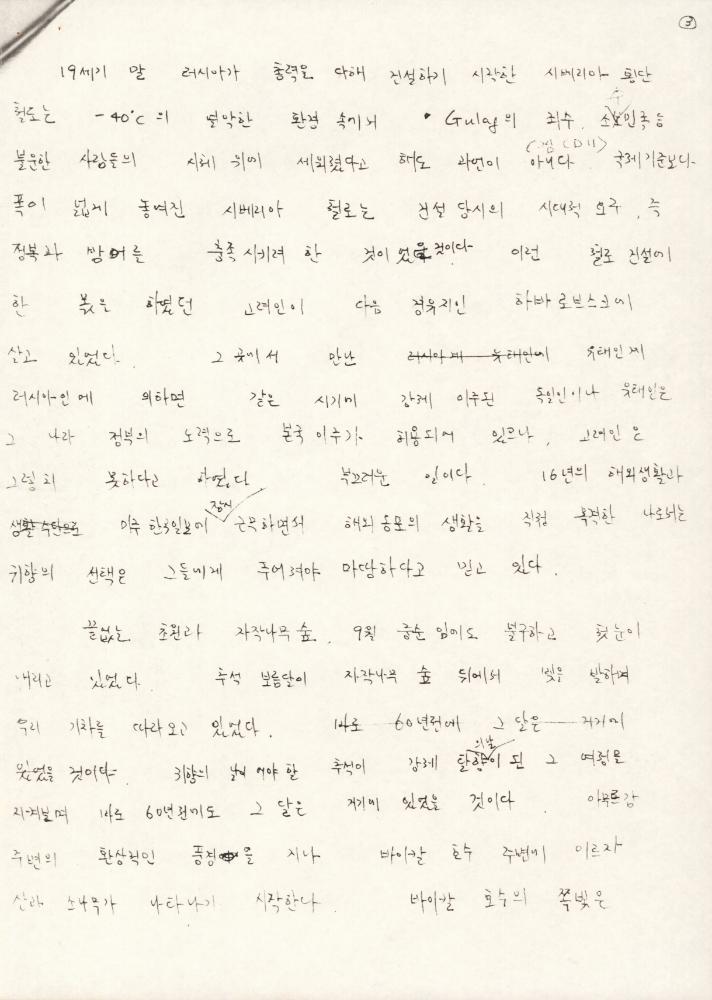 ③
19세기 말 러시아가 총력을 다해 건설하기 시작한 시베리아 횡단
철도는 -40℃의 열악한 환경 속에서 Gulag의 죄수, 소수민족 등
불운한 사람들의 시체 위에 세워졌다고 해도 과언이 아니다. 국제기준보다
폭이 넓게 놓여진 시베리아 철로는 건설 당시의 시대적 요구, 즉
정복과 방어를 충족시키려 한 것이었을 것이다. 이런 철로 건설에
한 몫을 하였던 고려인이 다음 경유지인 하바로브스크에
살고 있었다. 그 곳에서 만난 러시아계 유태인에 유태인계
러시아인에 의하면 같은 시기에 강제 이주된 독일인이나 유태인은
그 나라 정부의 노력으로 본국 이주가 허용되어 있으나, 고려인은
그렇지 못하다고 하였다. 부끄러운 일이다. 16년의 해외생활과
생활 수단으로 미주 한국일보에 잠시 근무하면서 해외 동포의 생활을 직접 목격한 나로서는
귀향의 선택은 그들에게 주어져야 마땅하다고 믿고 있다.
끝없는 초원과 자작나무 숲. 9월 중순임에도 불구하고 첫눈이
내리고 있었다. 추석 보름달이 자작나무 숲 뒤에서 빛을 발하며
우리 기차를 따라오고 있었다. 바로 60년전에 그 달은 거기에
있었을 것이다. 귀향의 날이어야 할 추석이 강제 탈향의 날이 된 그 여정을
지켜보며 바로 60년전에도 그 달은 거기에 있었을 것이다. 아무르강
주변의 환상적인 풍경을 지나 바이칼 호수 주변에 이르자
산과 소나무가 나타나기 시작한다. 바이칼 호수의 쪽빛은